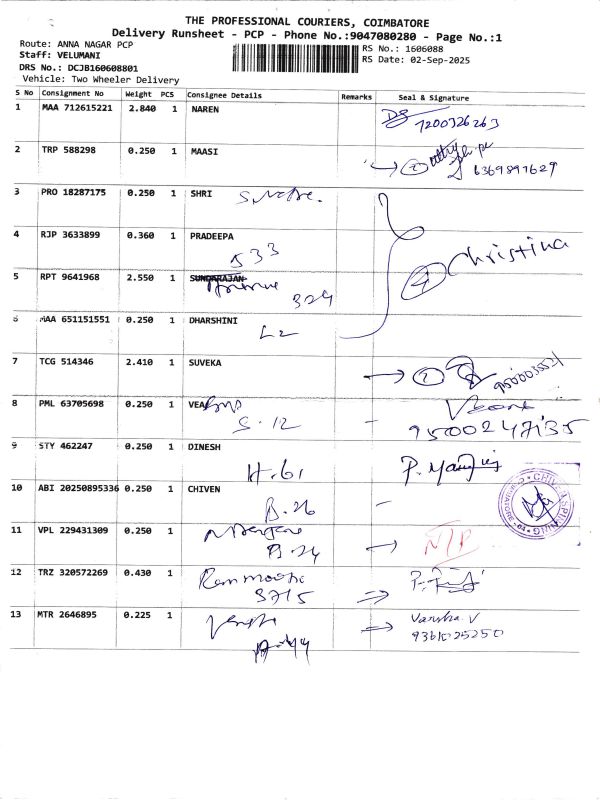 THE PROFESSIONAL COURIERS, COIMBATORE
Delivery Runsheet - PCP - Phone No.:9047080280 - Page No.:1
Route: ANNA NAGAR PCP
Staff: VELUMANI
DRS No.: DCJB160608801
Vehicle: Two Wheeler Delivery
RS No.: 1606088
RS Date: 02-Sep-2025
S No Consignment No Weight PCS Consignee Details Remarks Seal & Signature
1 MAA 712615221 2.840 1 NAREN
7200326263
2 TRP 588298 0.250 1 MAASI
2 6369897629
3 PRO 18287175 0.250 1 SHRI
4 RJP 3633899 0.360 1 PRADEEPA
533
4 Christina
5 RPT 9641968 2.550 1 SUNDARAJAN
324
6 MAA 651151551 0.250 1 DHARSHINI
L2
7 TCG 514346 2.410 1 SUVEKA
8 PML 63705698 0.250 1
S-12
9500247135
9 STY 462247 0.250 1 DINESH
H-61
10 ABI 20250895336 0.250 1 CHIVEN
B-26
11 VPL 229431309 0.250 1
B-24
12 TRZ 320572269 0.430 1
3715
13 MTR 2646895 0.225 1
Varsha. V
9361025250